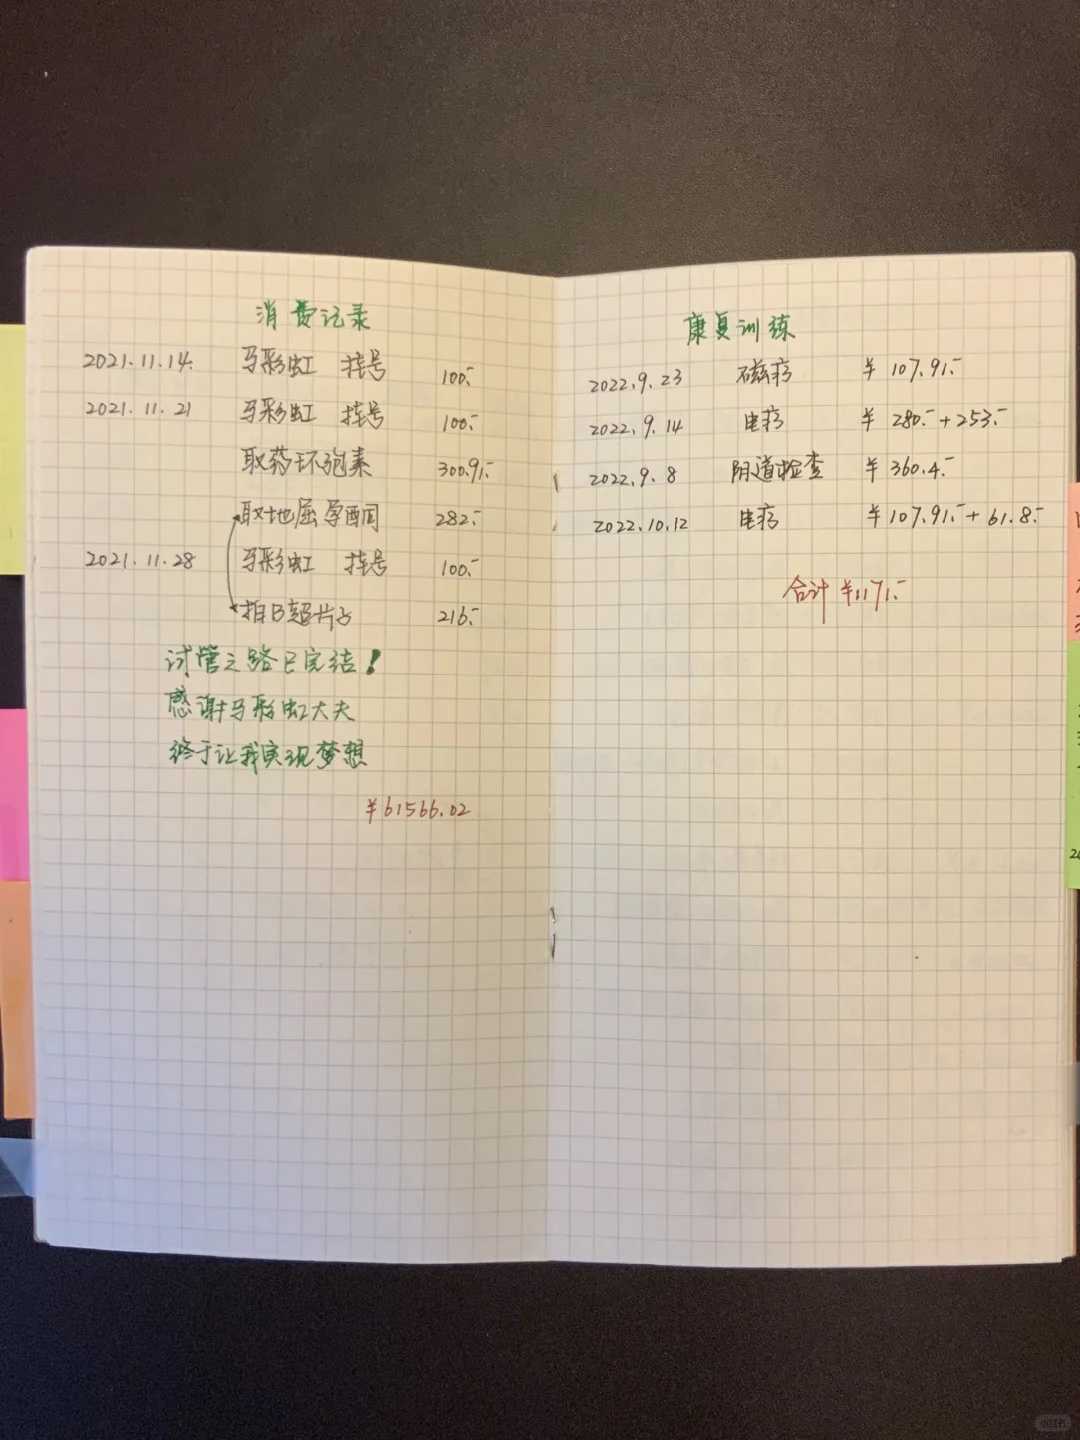 消费记录
2021.11.14. 马彩虹 挂号 100.-
2021.11.21 马彩虹 挂号 100.-
取药环孢素 300.91.-
取地屈孕酮 282.-
2021.11.28 马彩虹 挂号 100.-
拍B超片子 216.-
试管之路已完结！
感谢马彩虹大夫
终于让我实现梦想
¥61566.02
康复训练
2022.9.23 磁疗 ¥ 107.91.-
2022.9.14 电疗 ¥ 280.-+253.-
2022.9.8 阴道检查 ¥ 360.4.-
2022.10.12 电疗 ¥107.91.-+61.8.-
合计 ¥1171.-
小红书